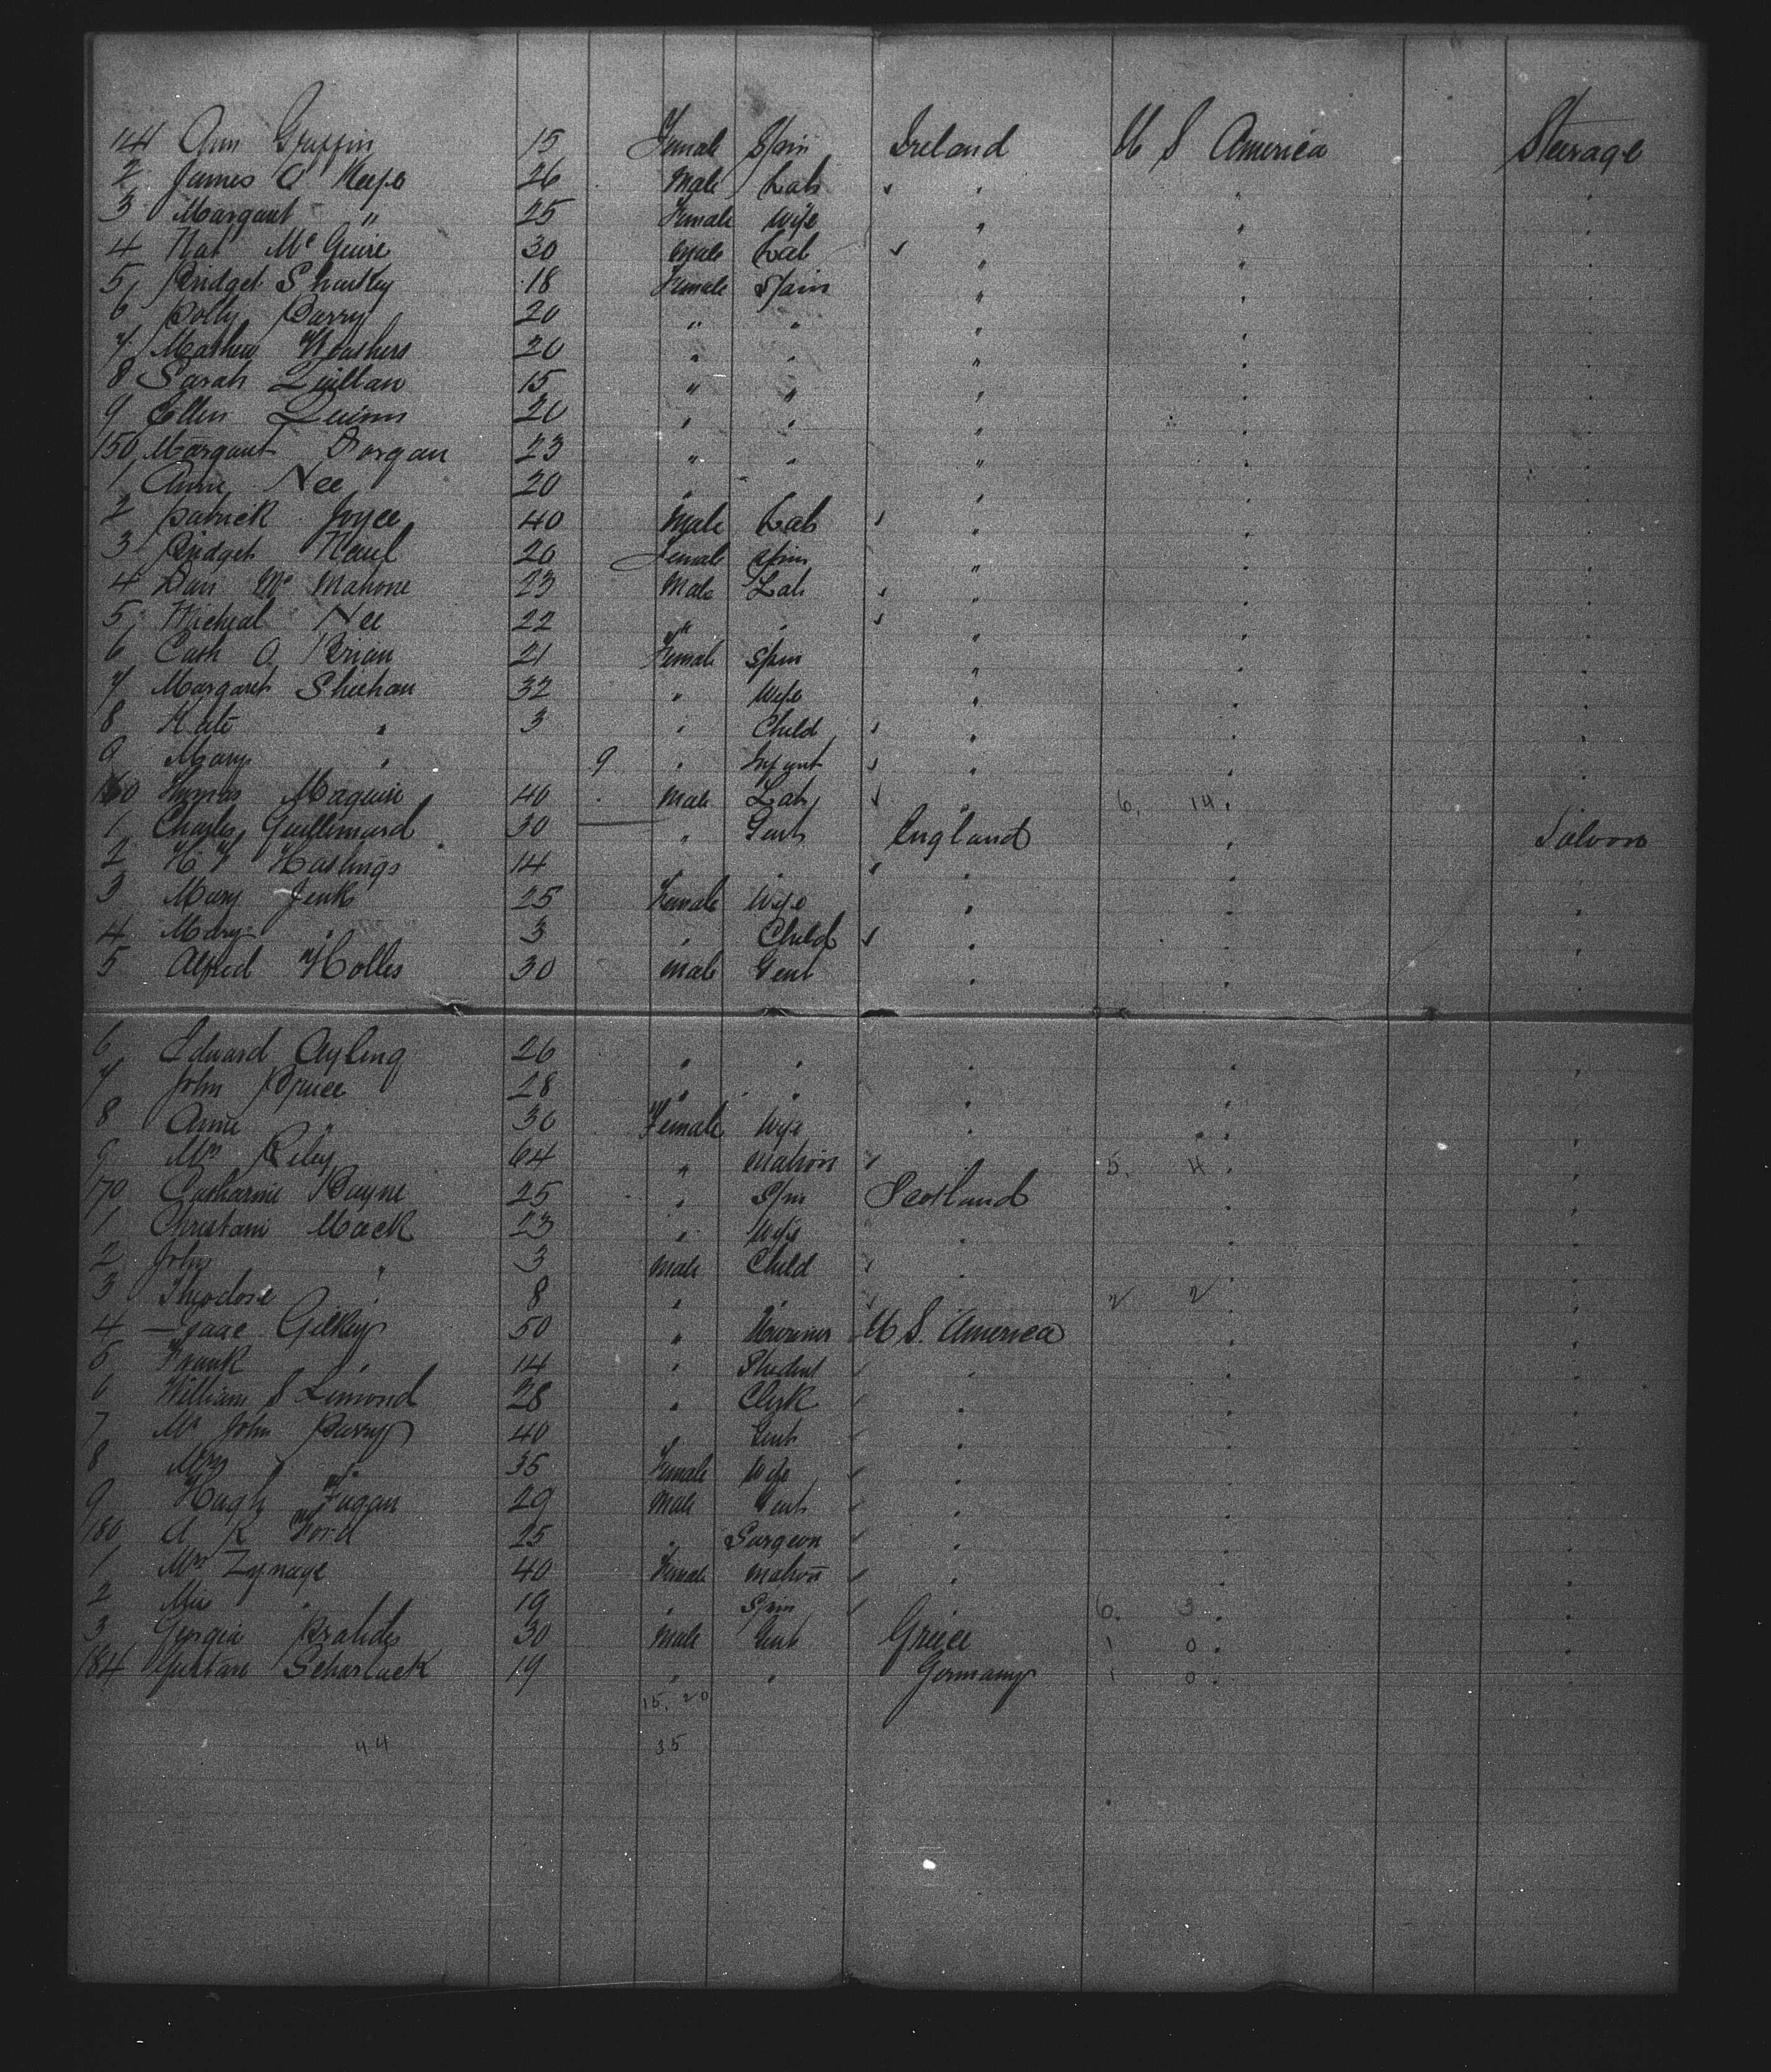 144 Ann Griffin 15 Female Spin Ireland U S America Steerage
2 James O Keefe 26 Male Lab ✓ " " "
3 Margaret " 25 Female Wife " " "
4 Nat Mc Guire 30 Male Lab ✓ " " "
5 Bridget 18 Female Spin " " "
6 Polly Barry 20 " " " " "
7 Mathew 20 " " " " "
8 Sarah Quillan 15 " " " " "
9 Ellen Quinn 20 " " " " "
150 Margaret 23 " " " " "
1 Annie Nee 20 " " " " "
2 Patrick Joyce 40 Male Lab ✓ " " "
3 Bridget 20 Female Spin " " "
4 Dan Mc Mahone 23 Male Lab ✓ " " "
5 Micheal Nee 22 " " ✓ " " "
6 Cath O Brian 21 Female Spin " " "
7 Margaret Sheehan 32 " Wife " " "
8 Kate " 3 " Child ✓ " " "
9 Mary " 9 " Infant ✓ " " "
160 Thomas Maguire 40 Male Lab ✓ " 6. 14 " "
1 Charles Guillimard 30 " Gent England " Saloon
2 Hastings 14 " " ✓ " " "
3 Mary Jenk 25 Female Wife " " "
4 Mary " 3 " Child ✓ " " "
5 Alfred Holles 30 Male Gent " " "
6 Edward Ayling 26 " " " " "
7 John Bruce 28 " " " " "
8 Annie " 30 Female Wife " " "
9 Mrs Riley 64 " Matron ✓ " 5. 4 " "
170 Catharine Bayne 25 " Spin Scotland " "
1 Christani Mack 23 " Wife " " "
2 John " 3 Male Child ✓ " " "
3 Theodore " 8 " " ✓ 2 2 " "
4 Isaac Gilkey 50 " U S. America " "
5 Frank " 14 " Student ✓ " " "
6 William S Limond 28 " Clerk ✓ " " "
7 Mr John Barry 40 " Gent ✓ " " "
8 Mrs " 35 Female Wife ✓ " " "
9 Hugh Fagan 29 Male Gent ✓ " " "
180 A R Ford 25 " Surgeon ✓ " " "
1 Mrs 40 Female Matron ✓ " " "
2 Miss " 19 " Spin ✓ 6. 3 " "
3 Georgia 30 Male Gent Greece 1 0 " "
184 Gustave 19 " " Germany 1 0 " "
15. 20
44 35